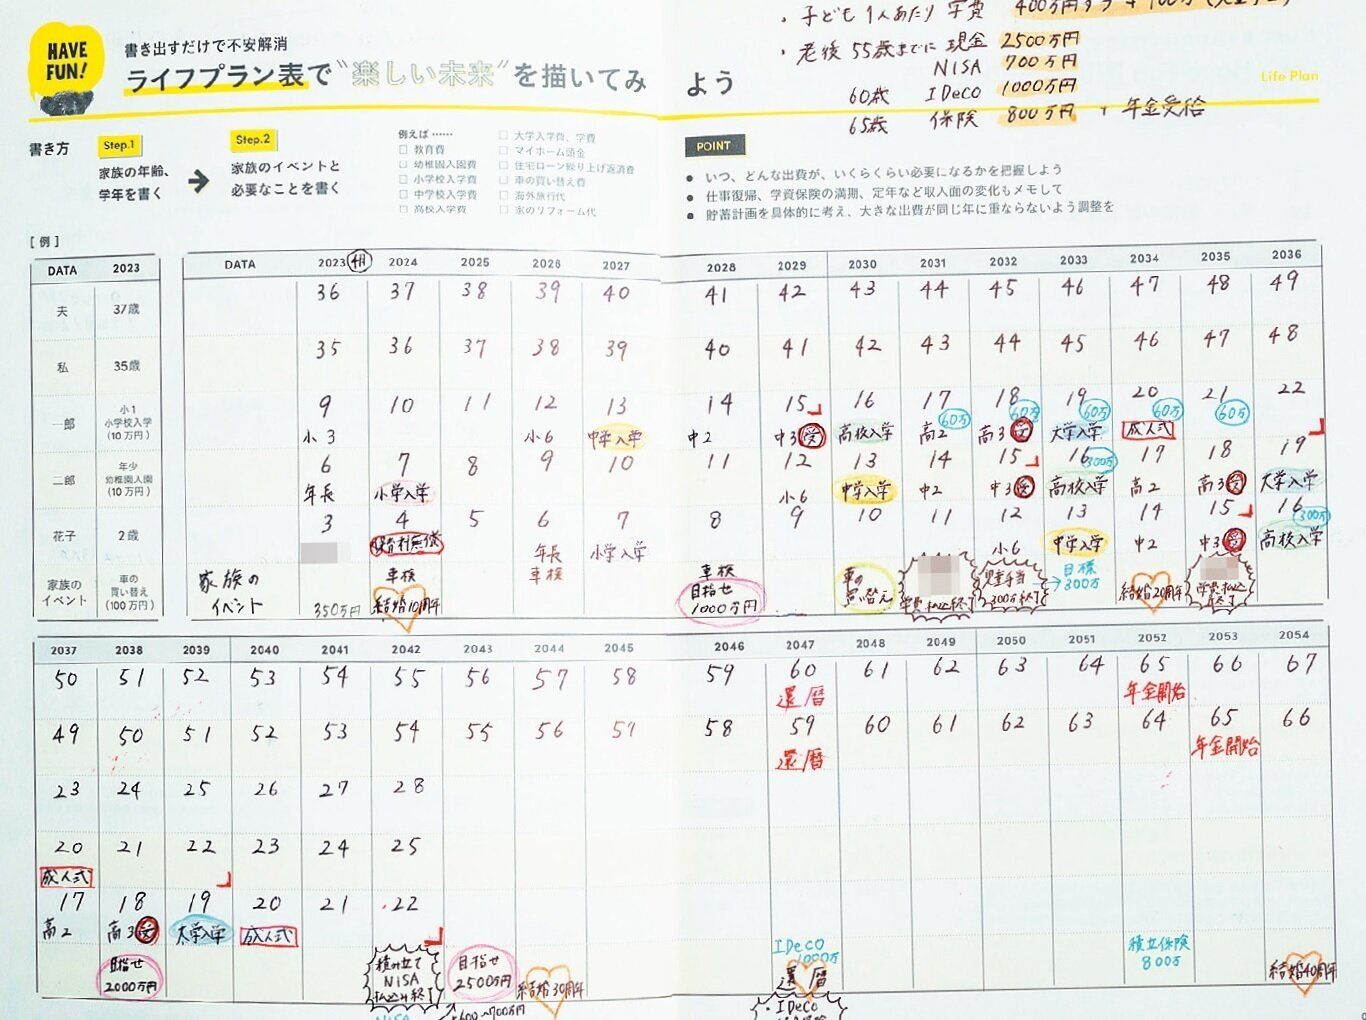 ・子ども1人あたり 学費 400万円ずつ
・老後 55歳までに 現金 2500万円
NISA 700万円
60歳 IDeCo 1000万円
65歳 保険 800万円 + 年金受給
HAVE FUN!
書き出すだけで不安解消
ライフプラン表で"楽しい未来"を描いてみよう
Life Plan
書き方
Step.1
家族の年齢、
学年を書く
Step.2
家族のイベントと
必要なことを書く
例えば……
□ 教育費
□ 幼稚園入園費
□ 小学校入学費
□ 中学校入学費
□ 高校入学費
□ 大学入学費、学費
□ マイホーム頭金
□ 住宅ローン繰り上げ返済費
□ 車の買い替え費
□ 海外旅行代
□ 家のリフォーム代
POINT
● いつ、どんな出費が、いくらくらい必要になるかを把握しよう
● 仕事復帰、学資保険の満期、定年など収入面の変化もメモして
● 貯蓄計画を具体的に考え、大きな出費が同じ年に重ならないよう調整を
[例]
DATA 2023
夫 37歳
私 35歳
一郎 小1 小学校入学 (10万円)
二郎 年少 幼稚園入園 (10万円)
花子 2歳
家族のイベント 車の買い替え (100万円)
DATA 2023 4月 2024 2025 2026 2027 2028 2029 2030 2031 2032 2033 2034 2035 2036
36 37 38 39 40 41 42 43 44 45 46 47 48 49
35 36 37 38 39 40 41 42 43 44 45 46 47 48
9 10 11 12 13 14 15 16 17 18 19 20 21 22
60万 60万 60万 60万 60万
小3 小6 中学入学 中2 中3 受 高校入学 高2 高3 受 大学入学 成人式
6 7 8 9 10 11 12 13 14 15 16 17 18 19
300万
年長 小学入学 小6 中学入学 中2 中3 受 高校入学 高2 高3 受 大学入学
3 4 5 6 7 8 9 10 11 12 13 14 15 16
300万
保育料無償 年長 小学入学 小6 中学入学 中2 中3 受 高校入学
家族のイベント
350万円
車検
結婚10周年
車検
車検
目指せ
1000万円
車の
買い替え
学費払込終了
児童手当
300万終了
→目標
300万
結婚20周年
学費払込
終了
2037 2038 2039 2040 2041 2042 2043 2044 2045 2046 2047 2048 2049 2050 2051 2052 2053 2054
50 51 52 53 54 55 56 57 58 59 60 61 62 63 64 65 66 67
還暦 年金開始
49 50 51 52 53 54 55 56 57 58 59 60 61 62 63 64 65 66
還暦 年金開始
23 24 25 26 27 28
20 21 22 23 24 25
成人式
17 18 19 20 21 22
高2 高3 受 大学入学 成人式
目指せ
2000万円
積み立て
NISA
払込み終了
NISA
600〜700万円
目指せ
2500万円
結婚30周年
IDeCo
1000万
還暦
・IDeCo
積立保険
800万
結婚40周年